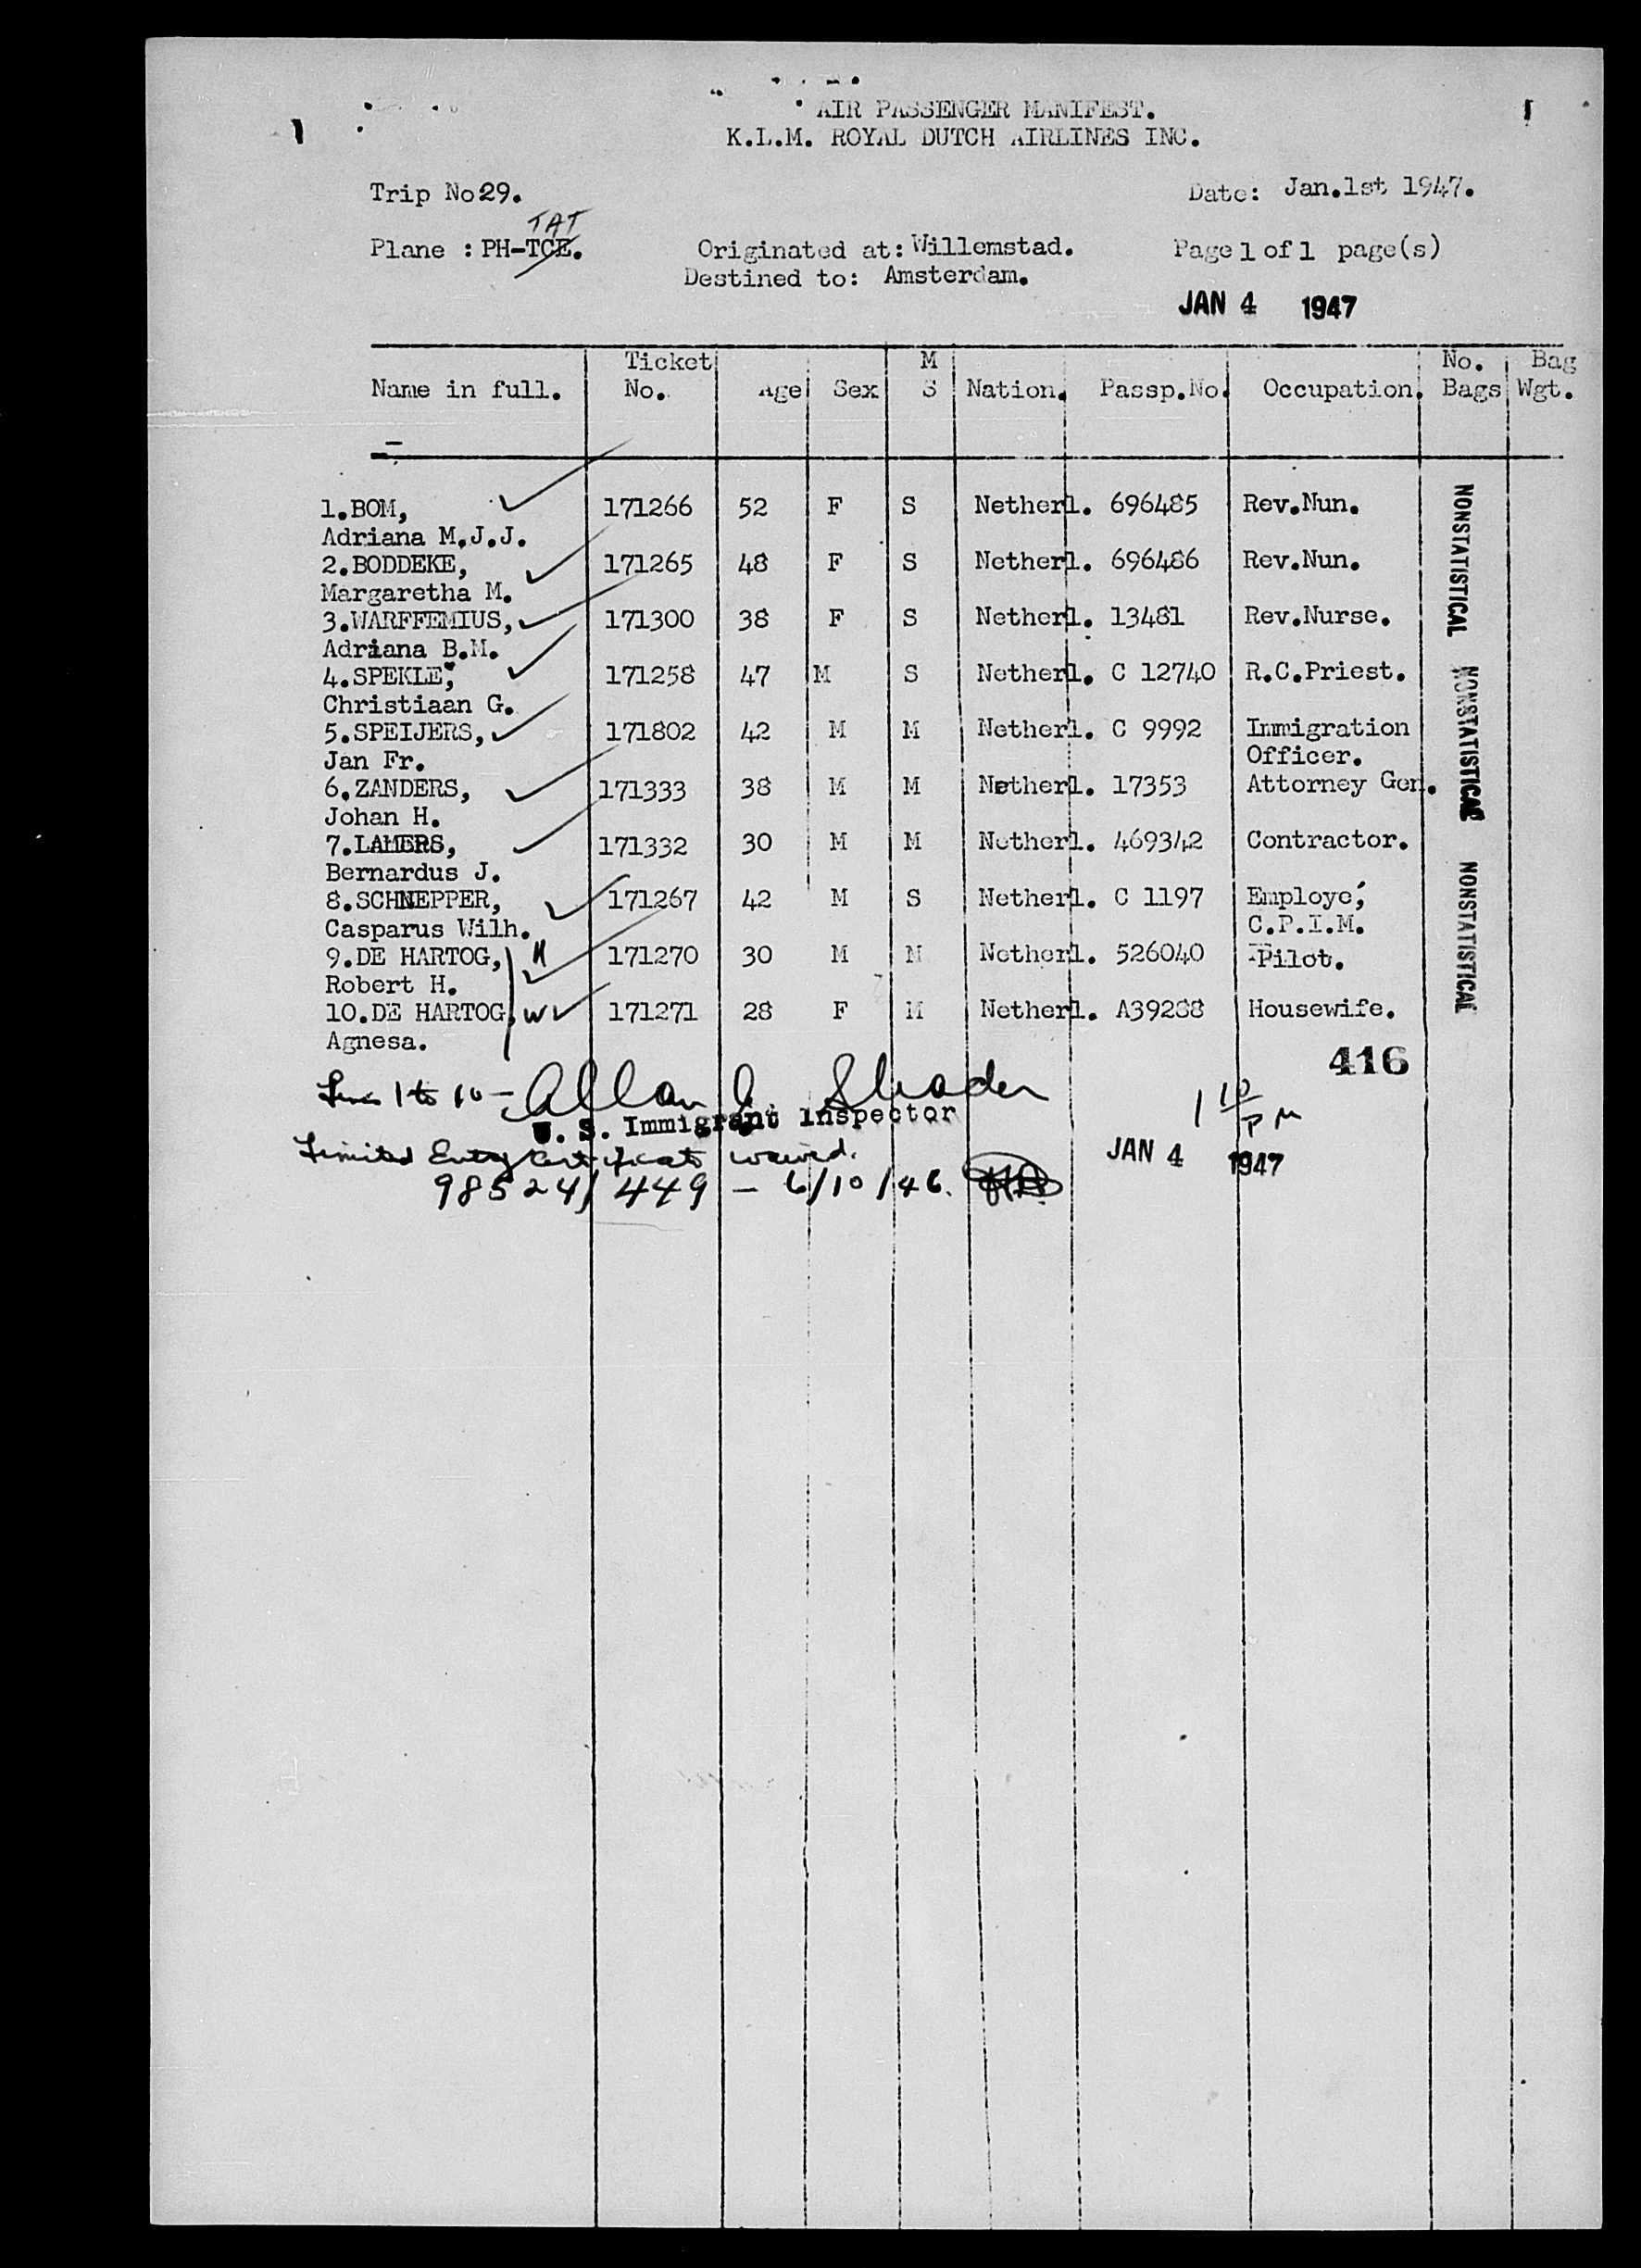 AIR PASSENGER MANIFEST.
K.L.M. ROYAL DUTCH AIRLINES INC.
Trip No 29. Date: Jan.1st 1947.
TAT
Plane : PH-TCE. Originated at: Willemstad. Page 1 of 1 page(s)
Destined to: Amsterdam.
JAN 4 1947
Ticket M No. Bag
Name in full. No. Age Sex S Nation. Passp.No. Occupation. Bags Wgt.
1.BOM, 171266 52 F S Netherl. 696485 Rev.Nun.
Adriana M.J.J.
2.BODDEKE, 171265 48 F S Netherl. 696486 Rev.Nun.
Margaretha M.
3.WARFFEMIUS, 171300 38 F S Netherl. 13481 Rev.Nurse.
Adriana B.M.
4.SPEKLE, 171258 47 M S Netherl. C 12740 R.C.Priest.
Christiaan G.
5.SPEIJERS, 171802 42 M M Netherl. C 9992 Immigration
Jan Fr. Officer.
6.ZANDERS, 171333 38 M M Netherl. 17353 Attorney Gen.
Johan H.
7.LAMERS, 171332 30 M M Netherl. 469342 Contractor.
Bernardus J.
8.SCHNEPPER, 171267 42 M S Netherl. C 1197 Employe,
Casparus Wilh. C.P.I.M.
9.DE HARTOG, H 171270 30 M M Netherl. 526040 Pilot.
Robert H.
10.DE HARTOG, W 171271 28 F M Netherl. A39288 Housewife.
Agnesa.
NONSTATISTICAL
NONSTATISTICAL
NONSTATISTICAL
416
Lines 1 to 10 - Allan J. Shader 1 10/PM
U. S. Immigrant Inspector
Limited Entry Certificate waived. JAN 4 1947
98524/449 - 6/10/46.